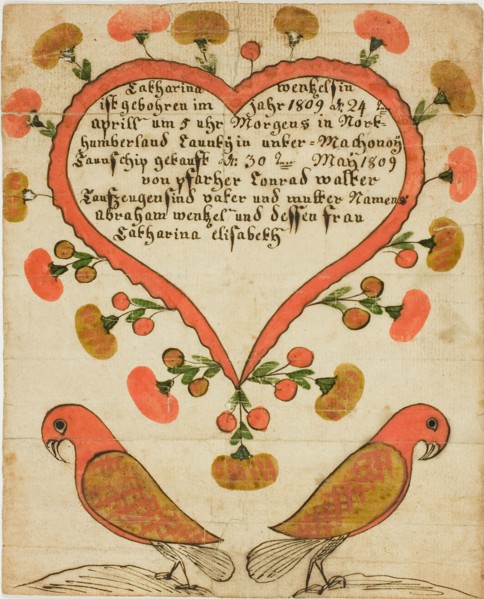 Catharina wenhelsin
ist gebohren im Jahr 1809 d: 24 ten
aprill um 5 uhr Morgens in Nort-
humberland Caunty in unter-Machonoÿ
Taunschip getauft d: 30 ten May 1809
von pfarher Conrad walter
Taufzeugen sind vater und mutter Namens
abraham wenhel und dessen frau
Catharina elisabeth